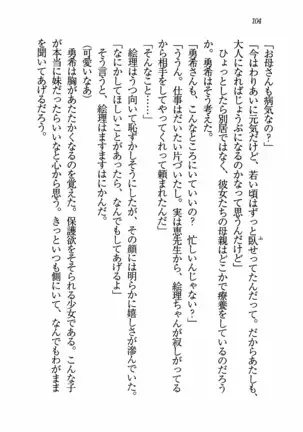 104
「お母さんも病気なの?」
「今はわりあいに元気だけど、若い頃はずっと臥せってたんだって。だからあたしも、
大人になればじょうぶになるのかなって思うんだけど」
ひょっとしたら別居ではなくて、彼女たちの母親はどこかで療養をしているのだろう
か。勇希はそう考えた。
「勇希さんも、こんなところにいていいの? 忙しいんじゃない?」
「ううん。仕事はだいたい片づいたし。実は恵先生から、絵理ちゃんが寂しがってる
から相手をしてやってくれって頼まれたんだ」
「そんなこと……」
絵理はちょっと怒って恥ずかしそうにしたが、その顔には明らかに嬉しさが滲んでいた。
「なにかしてほしいことがあったら、なんでもしてあげるよ」
そう言うと、絵理はますますはにかんだ。
(可愛いなあ)
勇希は胸があたたかくなるのを覚えた。保護欲をそそられる少女である。こんな子
が本当に妹だったらいいなと心から思う。きっといつも側にいて、なんでもわがまま
を聞いてあげるだろう。